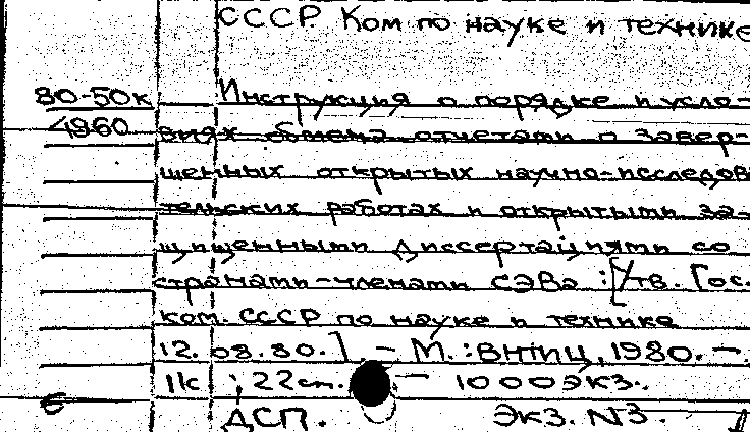 СССР. Ком по науке и технике
80-50к Инструкция о порядке и усло-
4860 виях обмена отчетами о завер-
шенных открытых научно-исследова
тельских работах и открытыми за-
щищенными диссертациями со
странами-членами СЭВа : [Утв. Гос.
ком. СССР по науке и технике
12.08.80.] - М. : ВНТИЦ, 1980. -
11с ; 22 см. - 1000 экз.
ДСП. Экз. N3.